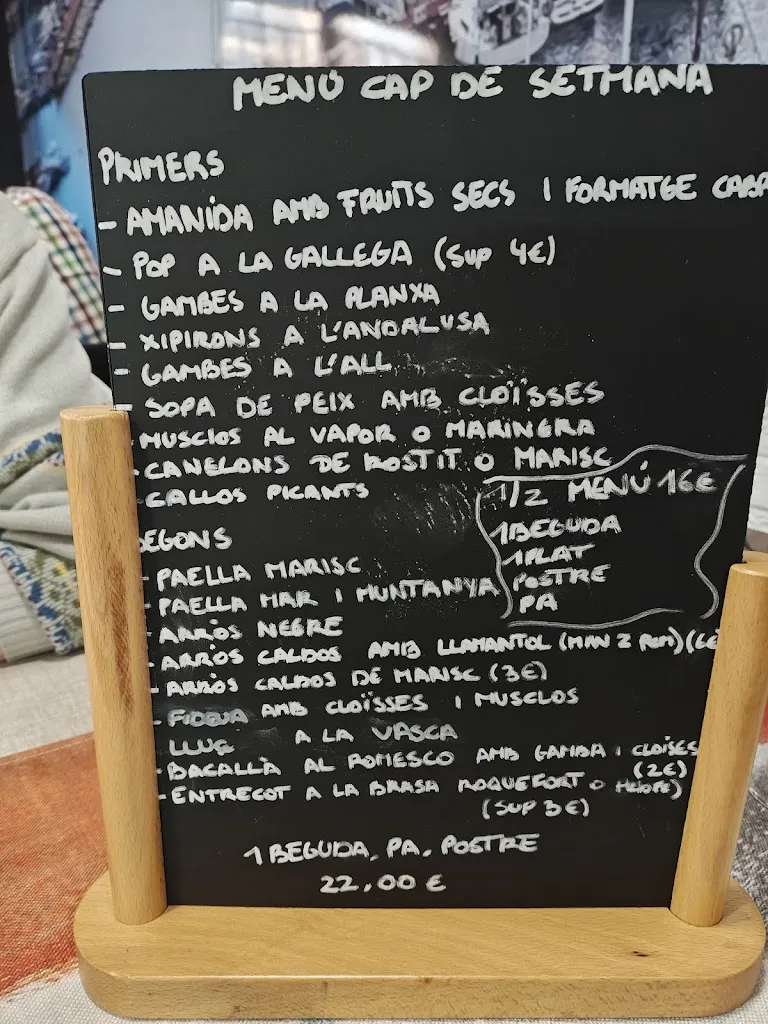 MENÚ CAP DE SETMANA
PRIMERS
- AMANIDA AMB FRUITS SECS I FORMATGE CABR
- POP A LA GALLEGA (SUP 4€)
- GAMBES A LA PLANXA
- XIPIRONS A L'ANDALUSA
- GAMBES A L'ALL
- SOPA DE PEIX AMB CLOÏSSES
- MUSCLOS AL VAPOR O MARINERA
- CANELONS DE ROSTIT O MARISC
- CALLOS PICANTS
1/2 MENÚ 16€
1 BEGUDA
1 PLAT
POSTRE
PA
SEGONS
- PAELLA MARISC
- PAELLA MAR I MUNTANYA
- ARRÒS NEGRE
- ARRÒS CALDOS AMB LLAMANTOL (MIN 2 PERS) (6€
- ARRÒS CALDOS DE MARISC (3€)
- FIDEUA AMB CLOÏSSES I MUSCLOS
- LLUÇ A LA VASCA
- BACALLÀ AL ROMESCO AMB GAMBA I CLOÏSES (2€)
- ENTRECOT A LA BRASA ROQUEFORT O
(SUP 3€)
1 BEGUDA, PA, POSTRE
22,00 €